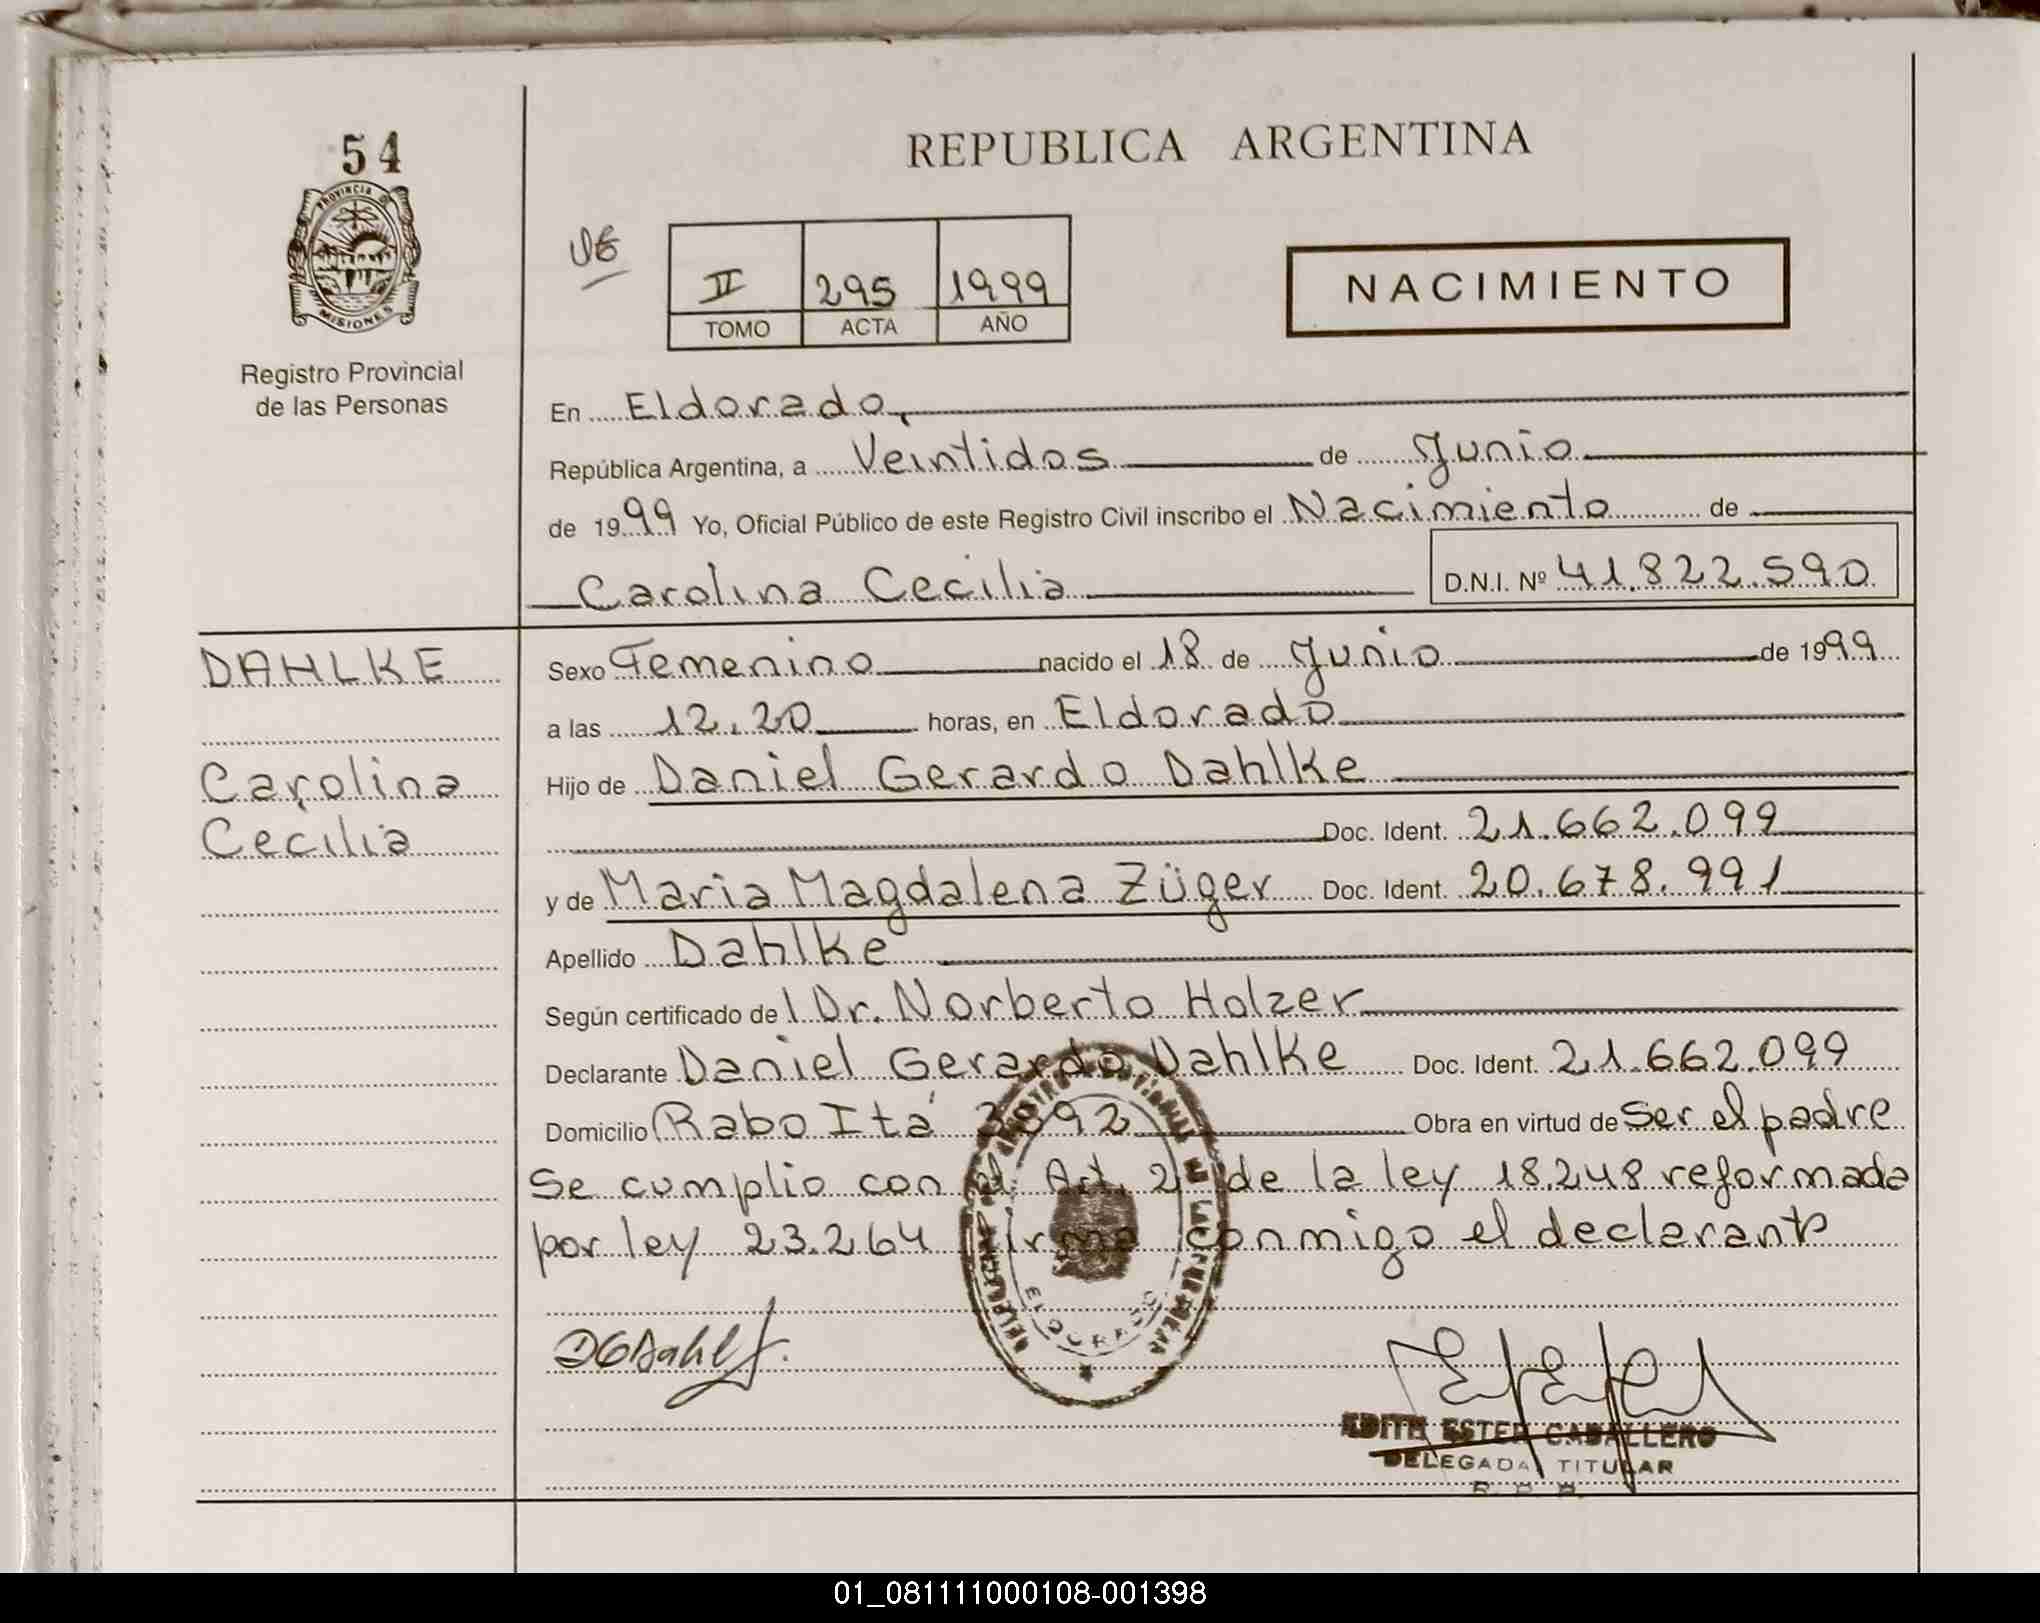 54
PROVINCIA D
MISIONES
Registro Provincial
de las Personas
REPUBLICA ARGENTINA
UE
II 295 1999
TOMO ACTA AÑO
NACIMIENTO
En Eldorado,
República Argentina, a Veintidos de Junio
de 1999 Yo, Oficial Público de este Registro Civil inscribo el Nacimiento de
Carolina Cecilia D.N.I. Nº 41.822.590
DAHLKE
Carolina
Cecilia
Sexo Femenino nacido el 18 de Junio de 1999
a las 12.20 horas, en Eldorado
Hijo de Daniel Gerardo Dahlke
Doc. Ident. 21.662.099
y de Maria Magdalena Züger Doc. Ident. 20.678.991
Apellido Dahlke
Según certificado del Dr. Norberto Holzer
Declarante Daniel Gerardo Dahlke Doc. Ident. 21.662.099
Domicilio Rabo Itá Obra en virtud de Ser el padre
Se cumplio con el Art. 2 de la ley 18.248 reformada
por ley 23.264 Firma conmigo el declarante
ELDORADO
DGDahlk
EDITH ESTER CABALLERO
DELEGADA TITULAR
R. P. P.
01_081111000108-001398